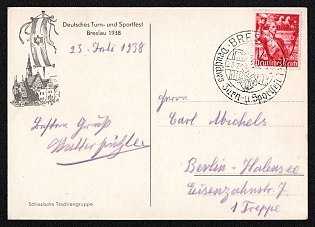 Deutsches Turn- und Sportfest
Breslau 1938
25. Juli 1938
BRES
Deutsches Turn- u. Sportfest
Deutsches Reich
Herrn
Carl Michels
Besten Gruß
Walter
Berlin-Halensee
Eisenzahnstr. 7
1 Treppe
Schlesische Trachtengruppe